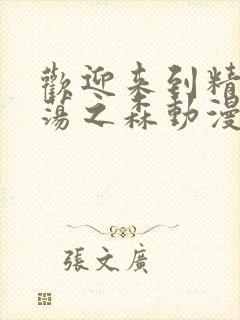 歡迎来到精
湯之森動漫
張文廣